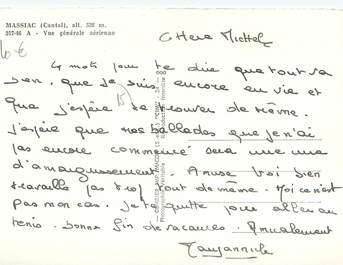 MASSIAC (Cantal), alt. 538 m.
217-46 A - Vue générale aérienne
10 €
Chere Michel,
4 mots pour te dire que tout va
bien, que je suis encore en vie et
que j'espère te trouver de même.
J'espère que nos ballades que je n'ai
pas encore commencé sera une
d'amaigrissement. Amuse toi bien
travaille pas trop tout de même. Moi ce n'est
pas mon cas. Je te quitte pour aller au
tenis. Bonne fin de vacances. Amicalement